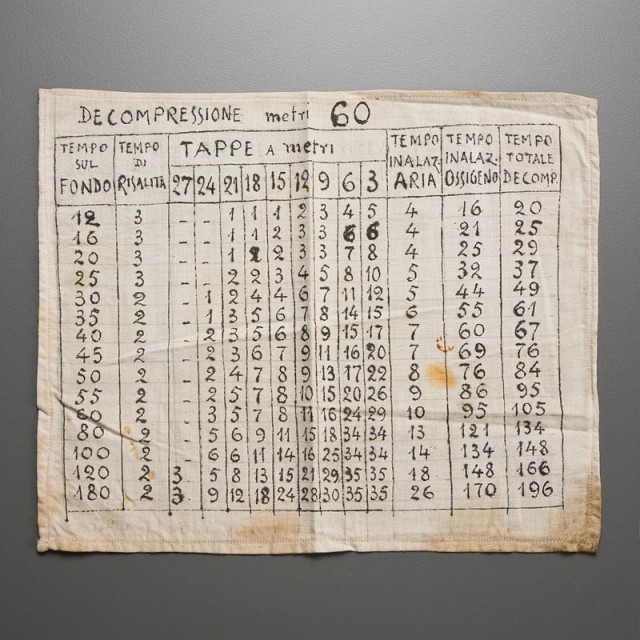 DECOMPRESSIONE metri 60
TEMPO SUL FONDO TEMPO DI RISALITÀ TAPPE A metri TEMPO INALAZ. ARIA TEMPO INALAZ. OSSIGENO TEMPO TOTALE DECOMP.
27 24 21 18 15 12 9 6 3
12 3 - - 1 1 1 2 3 4 5 4 16 20
16 3 - - 1 1 2 3 3 6 6 4 21 25
20 3 - - 1 2 2 3 3 7 8 4 25 29
25 3 - - 2 2 3 4 5 8 10 5 32 37
30 2 - 1 2 4 4 6 7 11 12 5 44 49
35 2 - 1 3 5 6 7 8 14 15 6 55 61
40 2 - 2 3 5 6 8 9 15 17 7 60 67
45 2 - 2 3 6 7 9 11 16 20 7 69 76
50 2 - 2 4 7 8 9 13 17 22 8 76 84
55 2 - 2 5 7 8 10 15 20 26 9 86 95
60 2 - 3 5 7 8 11 16 24 29 10 95 105
80 2 - 5 6 9 11 15 18 34 34 13 121 134
100 2 - 6 6 11 14 16 25 34 34 14 134 148
120 2 3 5 8 13 15 21 29 35 35 18 148 166
180 2 3 9 12 18 24 28 30 35 35 26 170 196